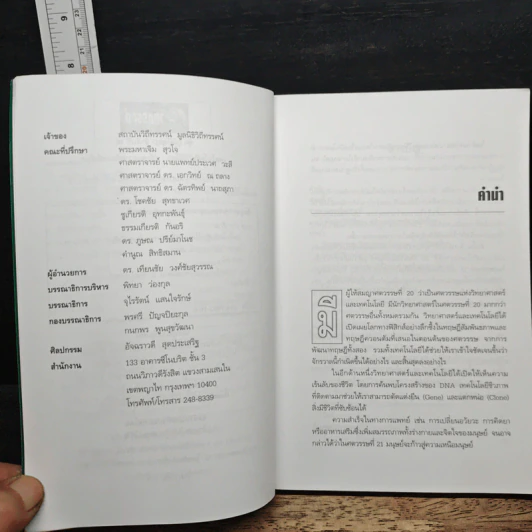 9
8
เจ้าของ สถาบันวิถีทรรศน์ มูลนิธิวิถีทรรศน์
คณะที่ปรึกษา พระมหาเจิม สุวโจ
ศาสตราจารย์ นายแพทย์ประเวศ วะสี
ศาสตราจารย์ ดร. เอกวิทย์ ณ ถลาง
ศาสตราจารย์ ดร. ฉัตรทิพย์ นาถสุภา
ดร. โชคชัย สุทธาเวศ
ชูเกียรติ อุทกะพันธุ์
ธรรมเกียรติ กันอริ
ดร. ภูษณ ปรีย์มาโนช
คำนูณ สิทธิสมาน
ผู้อำนวยการ ดร. เทียนชัย วงศ์ชัยสุวรรณ
บรรณาธิการบริหาร พิทยา ว่องกุล
บรรณาธิการ จุไรรัตน์ แสนใจรักษ์
กองบรรณาธิการ พรศรี ปัญจปิยะกุล
กนกพร พูนสุขวัฒนา
ศิลปกรรม อัจฉราวดี สุดประเสริฐ
สำนักงาน 133 อาคารซีไนบริด ชั้น 3
ถนนวิภาวดีรังสิต แขวงสามเสนใน
เขตพญาไท กรุงเทพฯ 10400
โทรศัพท์/โทรสาร 248-8339
คำนำ
มีผู้ให้สมญาศตวรรษที่ 20 ว่าเป็นศตวรรษแห่งวิทยาศาสตร์
และเทคโนโลยี มีนักวิทยาศาสตร์ในศตวรรษที่ 20 มากกว่า
ศตวรรษอื่นทั้งหมดรวมกัน วิทยาศาสตร์และเทคโนโลยีได้
เปิดเผยโลกทางฟิสิกส์อย่างลึกซึ้งในทฤษฎีสัมพันธภาพและ
ทฤษฎีควอนตัมที่เสนอในตอนต้นของศตวรรษ จากการ
พัฒนาทฤษฎีทั้งสอง รวมทั้งเทคโนโลยีได้ช่วยให้เราเข้าใจชัดเจนขึ้นว่า
จักรวาลนี้กำเนิดขึ้นได้อย่างไร และสิ้นสุดลงอย่างไร
ในอีกด้านหนึ่งวิทยาศาสตร์และเทคโนโลยีได้เปิดให้เห็นความ
เร้นลับของชีวิต โดยการค้นพบโครงสร้างของ DNA เทคโนโลยีชีวภาพ
ที่ติดตามมาช่วยให้เราสามารถตัดแต่งยีน (Gene) และแตกหน่อ (Clone)
สิ่งมีชีวิตที่ซับซ้อนได้
ความสำเร็จในทางการแพทย์ เช่น การเปลี่ยนอวัยวะ การคิดยา
หรืออาหารเสริมซึ่งเพิ่มสมรรถภาพทั้งร่างกายและจิตใจของมนุษย์ จนอาจ
กล่าวได้ว่าในศตวรรษที่ 21 มนุษย์จะก้าวสู่ความเหนือมนุษย์